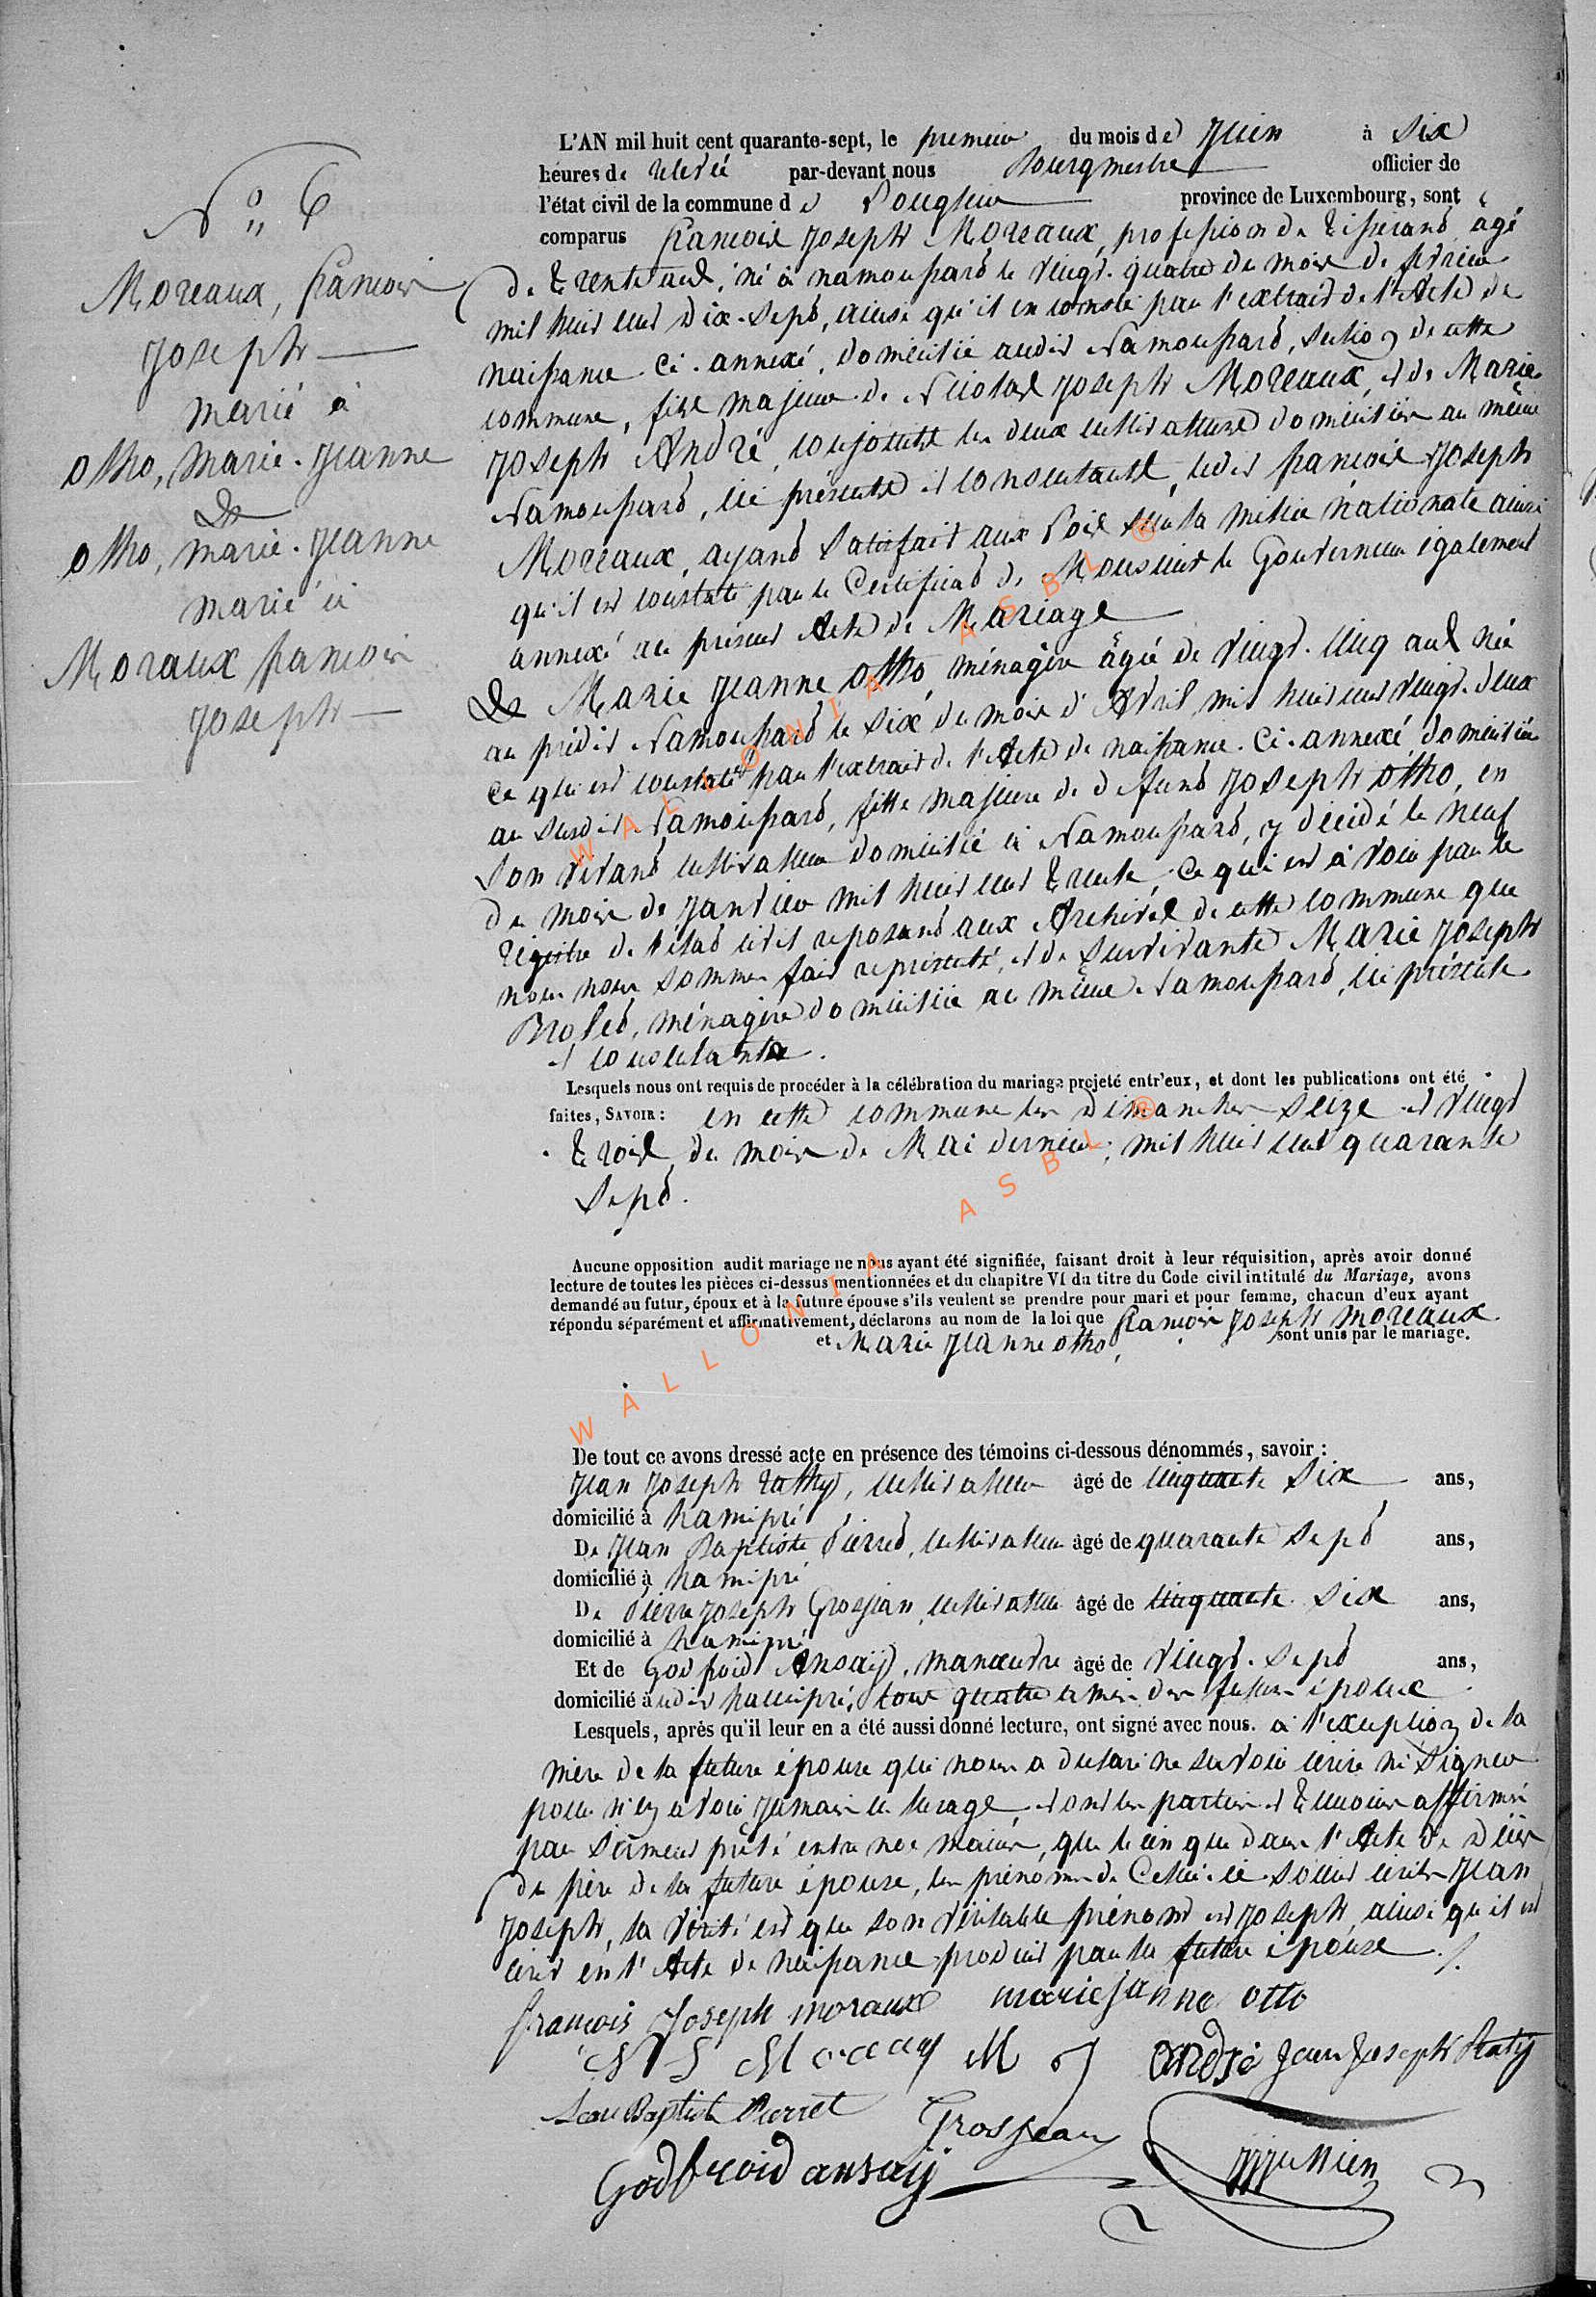 N° 6
Moreaux, francois
Joseph
marié à
otho, Marie-Jeanne
&
otho, Marie-Jeanne
marié à
Moraux francois
Joseph
L'AN mil huit cent quarante-sept, le premier du mois de Juin à Six
heures de relevée par-devant nous Bourgmestre officier de
l'état civil de la commune de Longlier province de Luxembourg, sont
comparus francois Joseph Moreaux, profession de tisserand âgé
de trente ans, né à namoussard le vingt-quatre du mois de février
mil huit cent dix-sept, ainsi qu'il en conste par l'extrait de l'Acte de
naissance ci-annexé, domicilié audit Namoussard, section de cette
commune, fils majeur de Nicolas Joseph Moreaux, et de Marie
Joseph André, conjoints les deux cultivateurs domiciliés au même
Namoussard, ici présents et consentants, ledit francois Joseph
Moreaux, ayant satisfait aux Lois sur la milice nationale ainsi
qu'il est constaté par le Certificat de Monsieur le Gouverneur également
annexé au présent Acte de Mariage
& Marie Jeanne otho, ménagère âgée de vingt-cinq ans née
au prédit Namoussard le six du mois d'Avril mil huit cent vingt-deux
ce qui est constaté par l'extrait de l'Acte de naissance ci-annexé, domiciliée
au susdit Namoussard, fille majeure de defunt Joseph otho, en
son vivant cultivateur domicilié à Namoussard, y décédé le neuf
du mois de Janvier mil huit cent trente, ce qui est à voir par le
régistre de l'état civil reposant aux Archives de cette commune que
nous nous sommes fait représenté, et de survivante Marie Joseph
ménagère domiciliée au même Namoussard, ici présente
et consentante.
Lesquels nous ont requis de procéder à la célébration du mariage projeté entr'eux, et dont les publications ont été
faites, SAVOIR: en cette commune les dimanches seize et vingt
trois du mois de Mai dernier, mil huit cent quarante
sept.
Aucune opposition audit mariage ne nous ayant été signifiée, faisant droit à leur réquisition, après avoir donné
lecture de toutes les pièces ci-dessus mentionnées et du chapitre VI du titre du Code civil intitulé du Mariage, avons
demandé au futur, époux et à la future épouse s'ils veulent se prendre pour mari et pour femme, chacun d'eux ayant
répondu séparément et affirmativement, déclarons au nom de la loi que francois Joseph moreaux
et Marie Jeanne otho, sont unis par le mariage.
De tout ce avons dressé acte en présence des témoins ci-dessous dénommés, savoir :
Jean Joseph Rathy, cultivateur âgé de cinquante six ans,
domicilié à hamipré
De Jean Baptiste Pierret, cultivateur âgé de quarante sept ans,
domicilié à hamipré
De Pierre Joseph Grosjean, cultivateur âgé de cinquante six ans,
domicilié à hamipré
Et de Godfroid Ansaÿ, manœuvre âgé de vingt-sept ans,
domicilié audit hamipré, tous quatre amis des futurs époux
Lesquels, après qu'il leur en a été aussi donné lecture, ont signé avec nous. à l'exception de la
mère de la future épouse qui nous a déclaré ne savoir écrire ni signer
pour n'en avoir jamais eu l'usage, et ont les parties et témoins affirmé
par serment prêté entre nos mains, que bien que dans l'Acte de décès
du père de la future épouse, les prénoms de celui-ci soient écrits Jean
Joseph, la vérité est que son véritable prénom est Joseph, ainsi qu'il est
écrit en l'Acte de naissance produit par la future épouse ./.
francois Joseph moraux marie Janne otto
N J Moreaux M J andré Jean Joseph Rathÿ
Jean Baptiste Pierret Grosjean
Godfroid ansaÿ
WALLONIA ASBL ®
WALLONIA ASBL ®